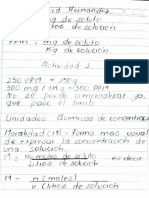 Hernandez
mg de soluto
Litros de solución
PPM = mg de soluto
Kg de solución
Actividad 2
250 PPM = 250g
300 mg / 1 Kg = 300 PPM
No se puede comercializar ya
que pasa el limite
Unidades Químicas de concentra
Molaridad (M) - Forma mas usual
de expresar la concentración de
una solución.
M = No. moles de soluto
Litros de solución
M = n (moles)
V (litros de solución)